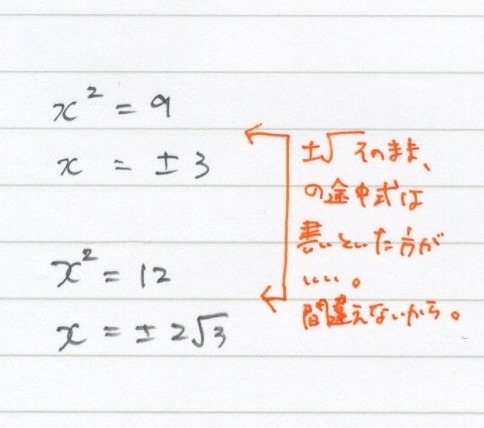 x² = 9
x = ±3
x² = 12
x = ±2√3
±√そのまま、
の途中式は
書いといた方が
いい。
間違えないから。